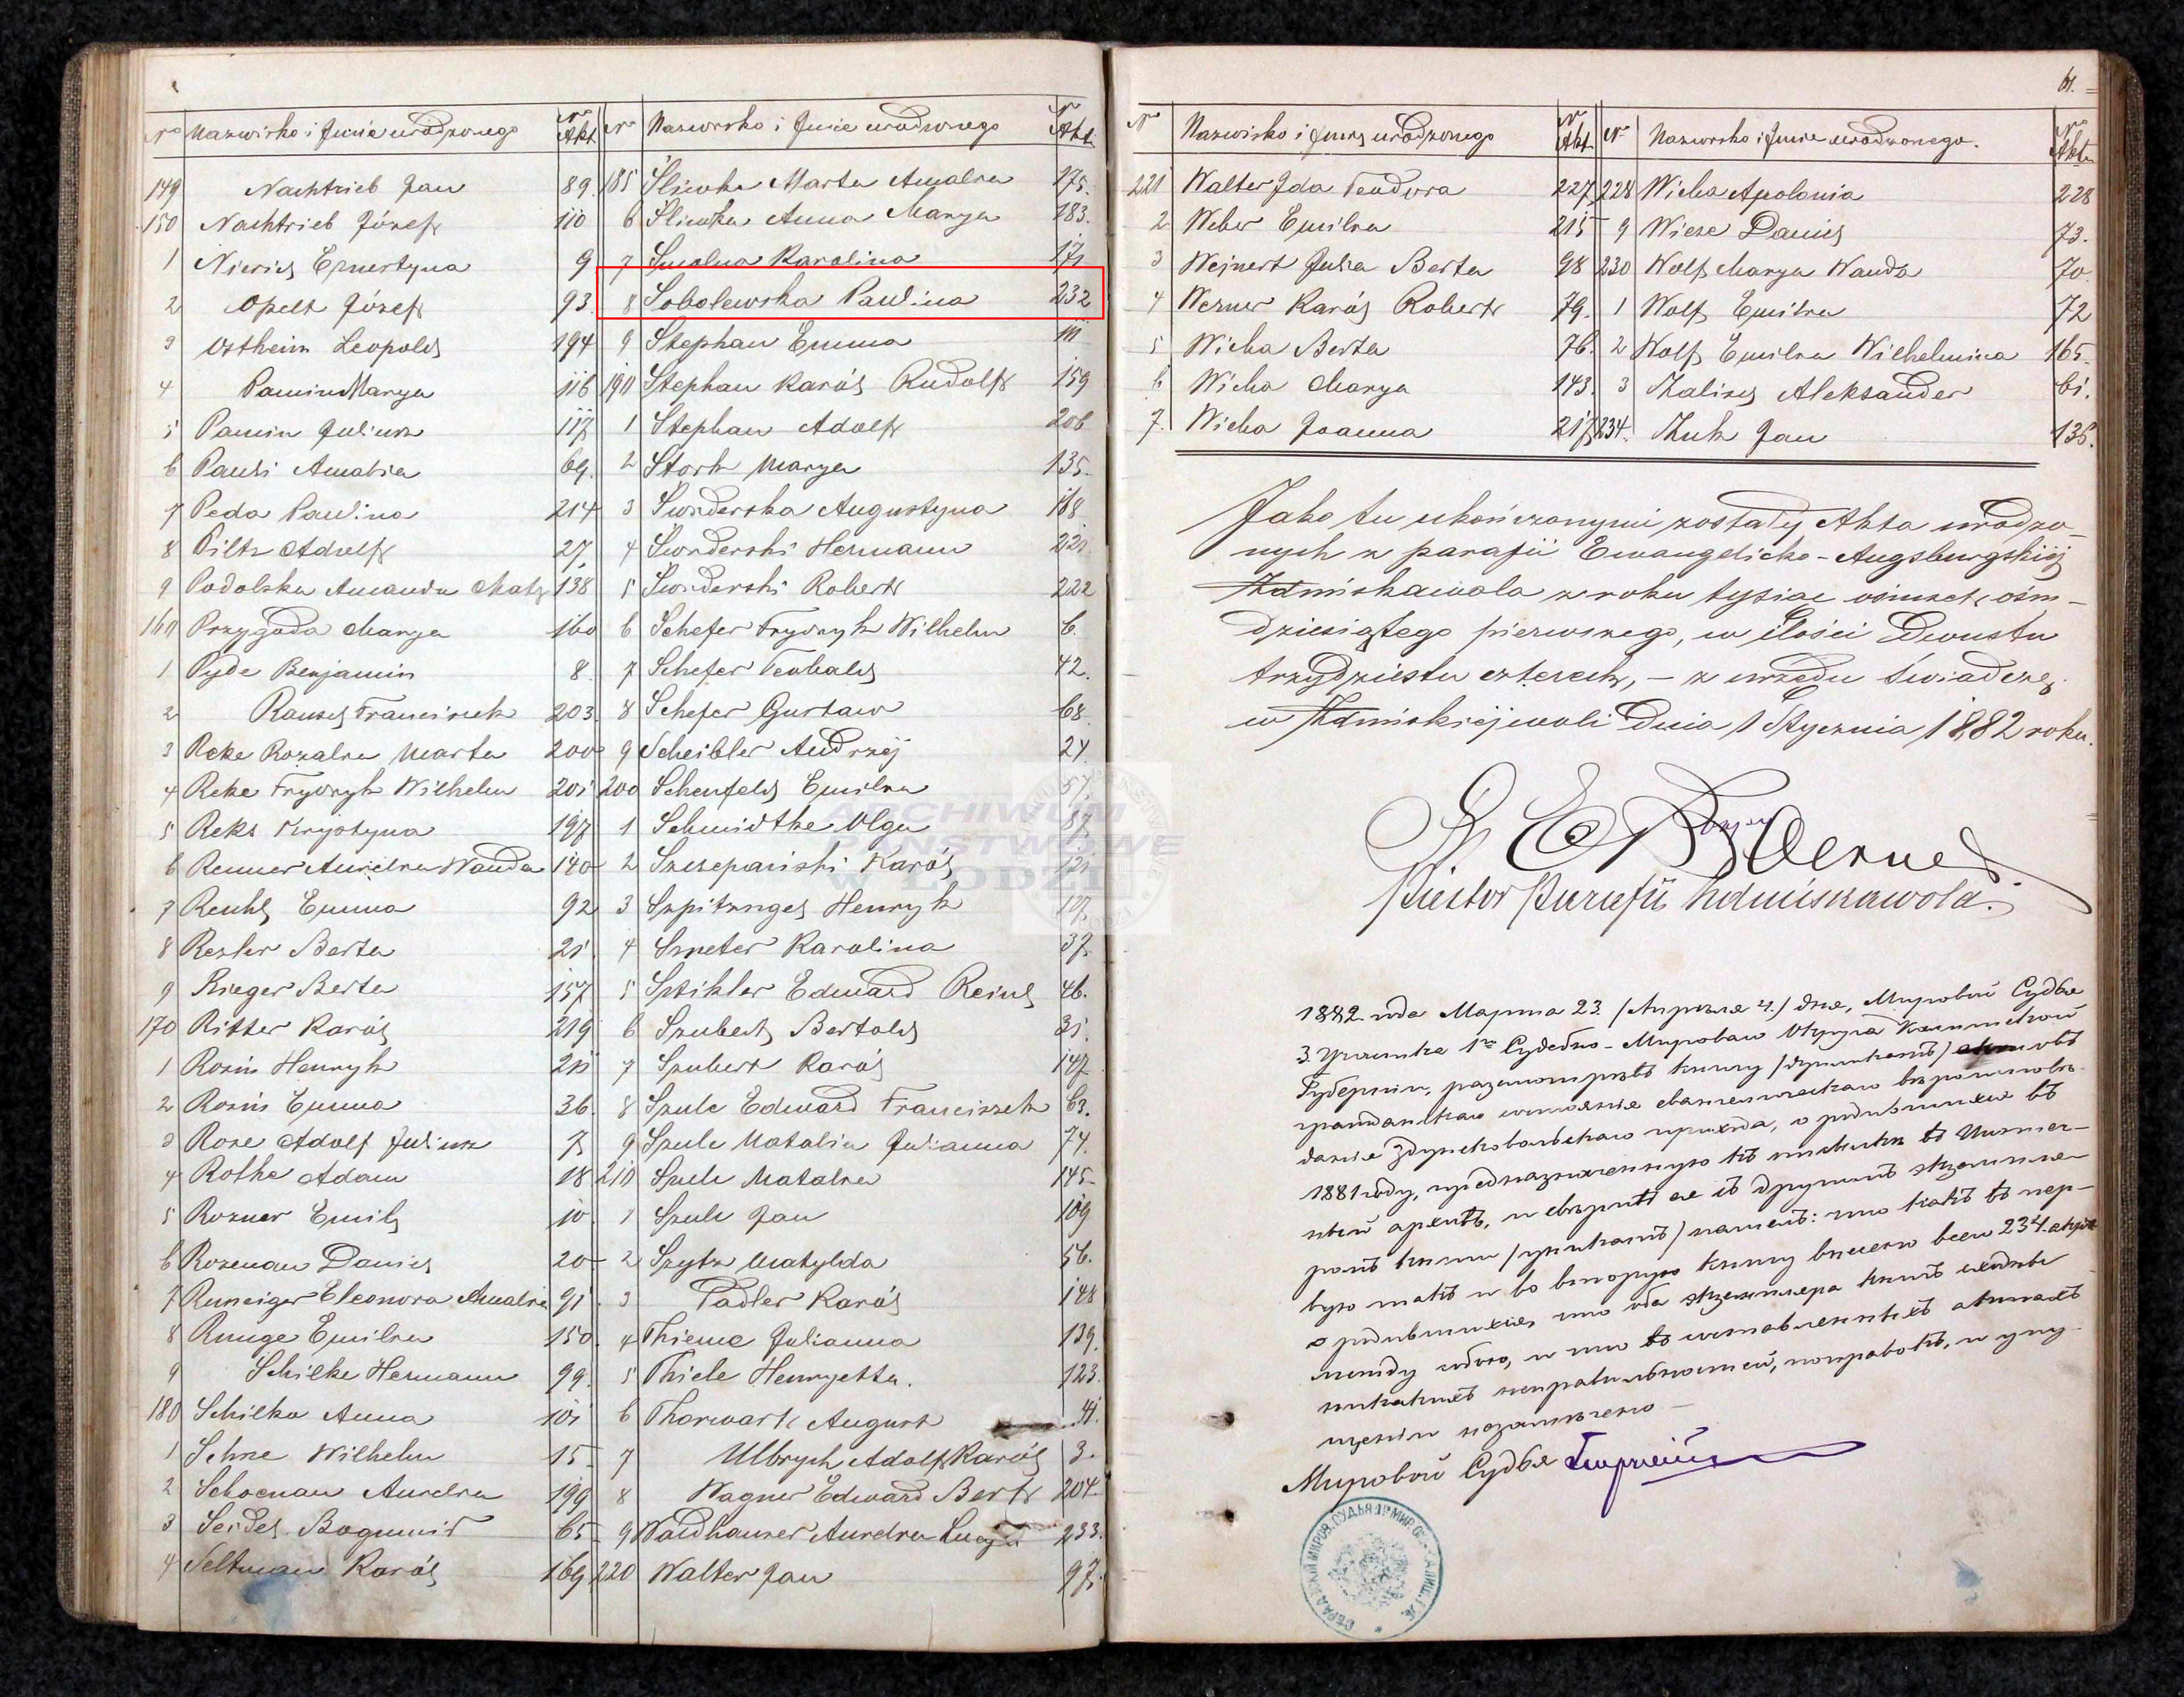 61.
No Nazwisko i Imie urodzonego No Akt
149 Nachtrieb Jan 89
150 Nachtrieb Józef 110
1 Ernestyna 9
2 Opelt Józef 93.
3 Ostheim Leopold 194
4 Pamin Marya 116
5 Pamin Juliusz 117
6 Amalia 69.
7 Peda Paulina 214
8 Piltz Adolf 27
9 Podolska Amanda 138
160 Przygoda Marya 160
1 Pyde Benjamin 8
2 Franciszek 203
3 Reke Rozalia Marta 200
4 Reke Frydryk Wilhelm 201
5 Reks Krystyna 197
6 Renner Aurelia Wanda 140
7 Emma 92
8 Resler Berta 21
9 Rieger Berta 157
170 Ritter Karól 219
1 Rosin Henryk 211
2 Rosin Emma 36
3 Rose Adolf Juliusz 7
4 Rothe Adam 18
5 Rozner Emil 10
6 Rosenau Daniel 20
7 Eleonora Amalia 91
8 Runge Emilia 150
9 Schilke Hermann 99.
180 Schilke Anna 101
1 Wilhelm 15
2 Schoenau Aurelia 199
3 Seidel Bogumił 65
4 Seltman Karól 169
No Nazwisko i Imie urodzonego No Akt
185 Śliwka Marta Amalia 175.
6 Śliwka Anna Marya 183.
7 Smolna Karolina 171
8 Sobolewska Paulina 232
9 Stephan Emma 111
190 Stephan Karól Rudolf 159
1 Stephan Adolf 206
2 Stork Marya 135.
3 Swiderska Augustyna 168
4 Swiderski Hermann 221.
5 Swiderski Robert 222
6 Schefer Frydryk Wilhelm 6.
7 Schefer Teobald 42.
8 Schefer Gustaw 68
9 Scheibler Andrzej 24
200 Schenfeld Emilia 57
1 Schmidtke Olga 87
2 Szczepański Karól 121
3 Henryk
4 Karolina 37
5 Edward 46.
6 Szubert Bertold 31.
7 Szubert Karól 147
8 Szulc Edward Franciszek 63.
9 Szulc Natalia Julianna 74.
210 Szulc Natalia 145
1 Szulc Jan 109
2 Matylda 56.
3 Tadler Karól 148
4 Thieme Julianna 139.
5 Thiele Henryetta. 123
6 August 41.
7 Ulbrych Adolf Karól 3.
8 Wagner Edward Bert 204
9 Waldhauser Aurelia 233.
220 Walter Jan 97
No Nazwisko i Imie urodzonego No Akt
221 Walter Ida Teodora 227
2 Weber Emilia 215
3 Wejnert Julia Berta 98
4 Werner Karól Robert 79.
5 Wicha Berta 76.
6 Wicha Marya 143.
7. Wicha Joanna 217
No Nazwisko i Imie urodzonego. No Akt
228 Wicha Apolonia 228
9 Wiese Daniel 73.
230 Wolf Marya Wanda 70
1 Wolf Emilia 72
2 Wolf Emilia Wilhelmina 165.
3 Aleksander 61.
234. Żuk Jan 136.
Jako tu ukończonymi zostały Akta urodzo-
nych w parafii Ewangelicko-Augsburgskiej
Zduńskawola w roku tysiąc ośmset ośm-
dziesiątego pierwszego, w ilości Dwustu
trzydziestu czterech, – z urzędu świadczę,
w Zduńskiejwoli Dnia 1 Stycznia 1882 roku.
Boerner
Pastor Parafii Zduńskawola.
1882 года Марта 23 /Апреля 4./ дня, Мировой Судья
3 Участка 1го Судебно-Мироваго Округа Калишской
Губернии, разсмотревъ книгу /дупликатъ/ актовъ
гражданскаго состоянія евангелическаго вероисповѣ-
данія Здунсковольскаго прихода, о родившихся въ
1881 году, предназначенную къ
архивъ, и сверивъ ее съ другимъ экземпля-
ромъ книги /уникатъ/ нашелъ: что какъ въ пер-
вую такъ и во вторую книгу внесено всего 234 акта
о родившихся, что оба экземпляра книгъ сходны
между собою, и что въ составленныхъ актахъ
никакихъ неправильностей, поправокъ, и упу-
щеній незамѣчено –
Мировой Судья
ARCHIWUM
PAŃSTWOWE
W ŁODZI